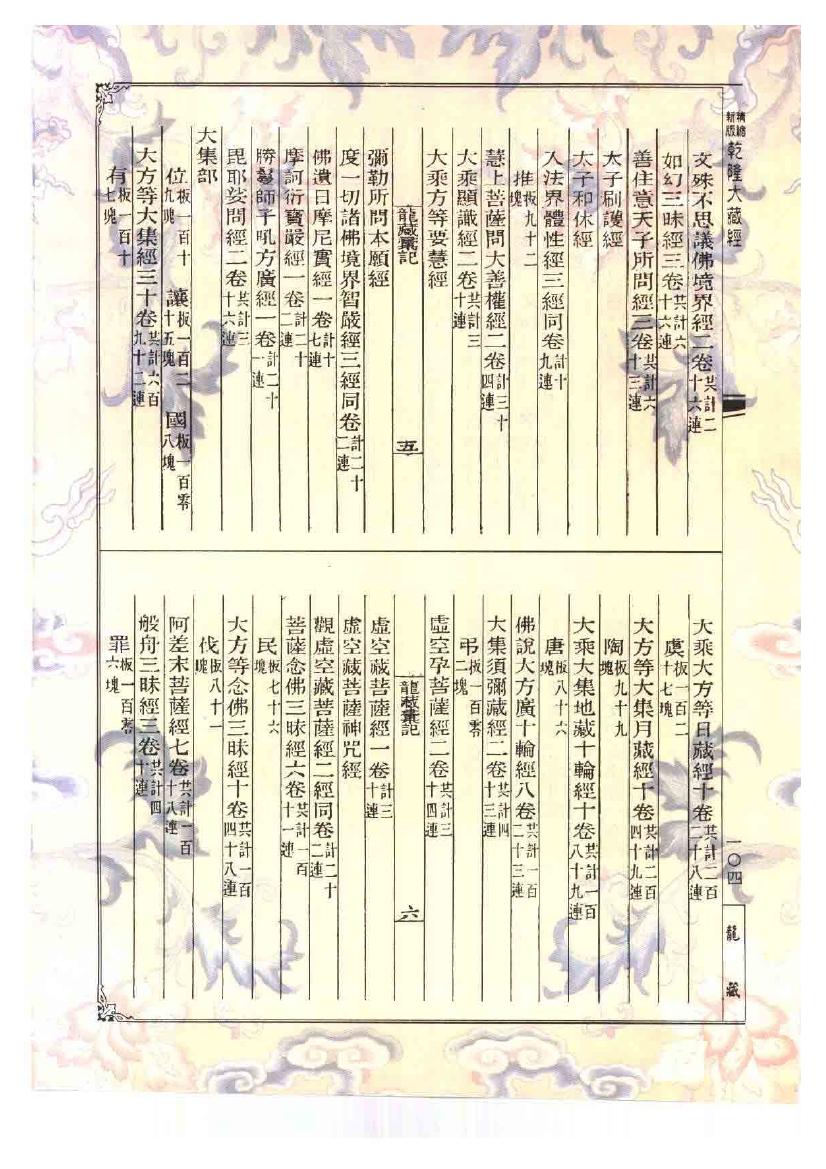 新版精繪乾隆大藏經
文殊不思議佛境界經二卷共計二十六連
如幻三昧經三卷共計六十六連
善住意天子所問經三卷共計六十三連
太子刷護經
太子和休經
入法界體性經三經同卷計十九連
推板九十二塊
慧上菩薩問大善權經二卷計三十四連
大乘顯識經二卷共計三十連
大乘方等要慧經
龍藏彙記 五
彌勒所問本願經
度一切諸佛境界智嚴經三經同卷計二十二連
佛遺日摩尼寶經一卷計十七連
摩訶衍寶嚴經一卷計二十二連
勝鬘師子吼方廣經一卷計二十一連
毘耶娑問經二卷共計三十六連
大集部
位板一百十九塊 讓板一百二十五塊 國板一百零八塊
大方等大集經三十卷共計六百九十二連
有板一百十七塊
大乘大方等日藏經十卷共計二百二十八連
虞板一百二十七塊
大方等大集月藏經十卷共計二百四十九連
陶板九十九塊
大乘大集地藏十輪經十卷共計一百八十九連
唐板八十六塊
佛說大方廣十輪經八卷共計一百二十三連
大集須彌藏經二卷共計四十三連
弔板一百零二塊
虛空孕菩薩經二卷共計三十四連
龍藏彙記 六
虛空藏菩薩經一卷計三十連
虛空藏菩薩神咒經
觀虛空藏菩薩經二經同卷計二十二連
菩薩念佛三昧經六卷共計一百十一連
民板七十六塊
大方等念佛三昧經十卷共計一百四十八連
伐板八十一塊
阿差末菩薩經七卷共計一百十八連
般舟三昧經三卷共計四十連
罪板一百零六塊
一〇四
龍藏